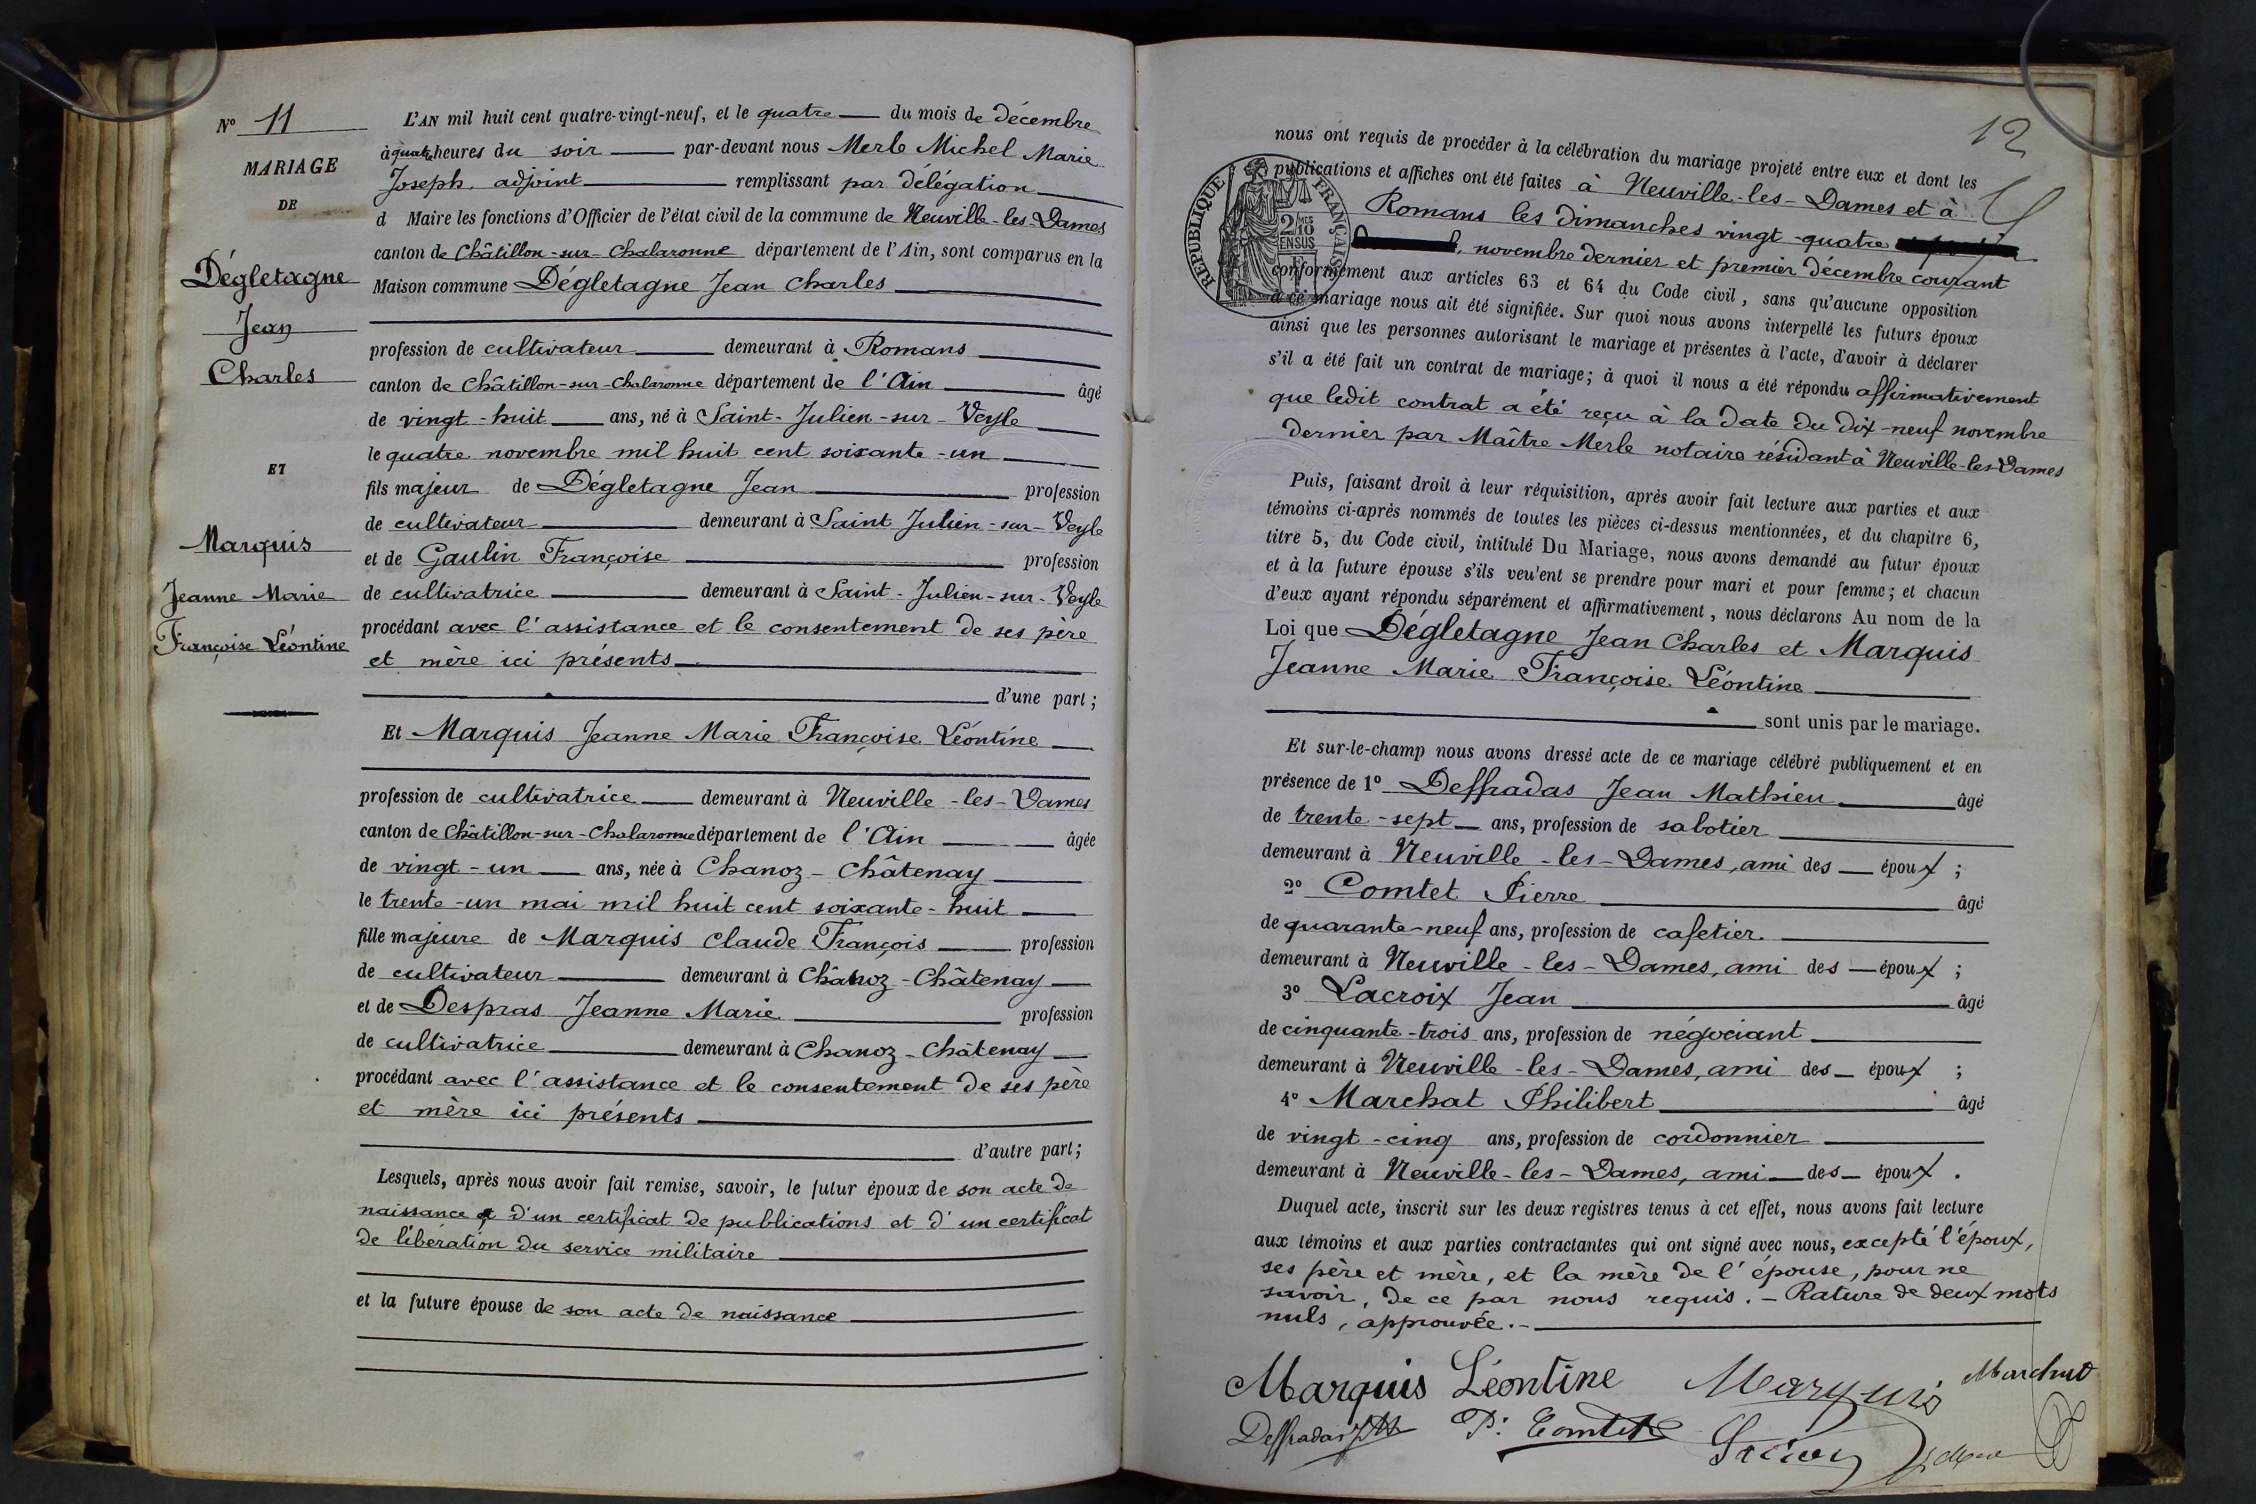 N° 11
MARIAGE
DE
Dégletagne
Jean
Charles
ET
Marquis
Jeanne Marie
Françoise Léontine
L'AN mil huit cent quatre-vingt-neuf, et le quatre du mois de décembre
à quatre heures du soir par-devant nous Merle Michel Marie
Joseph, adjoint remplissant par délégation
d Maire les fonctions d'Officier de l'état civil de la commune de Neuville-les-Dames
canton de Châtillon-sur-Chalaronne département de l'Ain, sont comparus en la
Maison commune Dégletagne Jean Charles
profession de cultivateur demeurant à Romans
canton de Châtillon-sur-Chalaronne département de l'Ain âgé
de vingt-huit ans, né à Saint-Julien-sur-Veyle
le quatre novembre mil huit cent soixante-un
fils majeur de Dégletagne Jean profession
de cultivateur demeurant à Saint Julien-sur-Veyle
et de Gaulin Françoise profession
de cultivatrice demeurant à Saint-Julien-sur-Veyle
procédant avec l'assistance et le consentement de ses père
et mère ici présents
d'une part;
Et Marquis Jeanne Marie Françoise Léontine
profession de cultivatrice demeurant à Neuville-les-Dames
canton de Châtillon-sur-Chalaronne département de l'Ain âgée
de vingt-un ans, née à Chanoz-Châtenay
le trente-un mai mil huit cent soixante-huit
fille majeure de Marquis Claude François profession
de cultivateur demeurant à Chanoz-Châtenay
et de Despras Jeanne Marie profession
de cultivatrice demeurant à Chanoz-Châtenay
procédant avec l'assistance et le consentement de ses père
et mère ici présents
d'autre part;
Lesquels, après nous avoir fait remise, savoir, le futur époux de son acte de
naissance d'un certificat de publications et d'un certificat
de libération du service militaire
et la future épouse de son acte de naissance
12
nous ont requis de procéder à la célébration du mariage projeté entre eux et dont les
publications et affiches ont été faites à Neuville-les-Dames et à
Romans les dimanches vingt-quatre
novembre dernier et premier décembre courant
conformément aux articles 63 et 64 du Code civil, sans qu'aucune opposition
à ce mariage nous ait été signifiée. Sur quoi nous avons interpellé les futurs époux
ainsi que les personnes autorisant le mariage et présentes à l'acte, d'avoir à déclarer
s'il a été fait un contrat de mariage; à quoi il nous a été répondu affirmativement
que ledit contrat a été reçu à la date du dix-neuf novembre
dernier par Maître Merle notaire résidant à Neuville-les-Dames
RÉPUBLIQUE FRANÇAISE
2 MES
10
EN SUS
Puis, faisant droit à leur réquisition, après avoir fait lecture aux parties et aux
témoins ci-après nommés de toutes les pièces ci-dessus mentionnées, et du chapitre 6,
titre 5, du Code civil, intitulé Du Mariage, nous avons demandé au futur époux
et à la future épouse s'ils veu'ent se prendre pour mari et pour femme; et chacun
d'eux ayant répondu séparément et affirmativement, nous déclarons Au nom de la
Loi que Dégletagne Jean Charles et Marquis
Jeanne Marie Françoise Léontine
sont unis par le mariage.
Et sur-le-champ nous avons dressé acte de ce mariage célébré publiquement et en
présence de 1° Deffradas Jean Mathieu âgé
de trente-sept ans, profession de sabotier
demeurant à Neuville-les-Dames, ami des époux;
2° Comtet Pierre âgé
de quarante-neuf ans, profession de cafetier
demeurant à Neuville-les-Dames, ami des époux;
3° Lacroix Jean âgé
de cinquante-trois ans, profession de négociant
demeurant à Neuville-les-Dames, ami des époux;
4° Marchat Philibert âgé
de vingt-cinq ans, profession de cordonnier
demeurant à Neuville-les-Dames, ami des époux.
Duquel acte, inscrit sur les deux registres tenus à cet effet, nous avons fait lecture
aux témoins et aux parties contractantes qui ont signé avec nous, excepté l'époux,
ses père et mère, et la mère de l'épouse, pour ne
savoir, de ce par nous requis. - Rature de deux mots
nuls, approuvée.-
Marquis Léontine Marquis Marchat
Deffradas JM P. Comtet